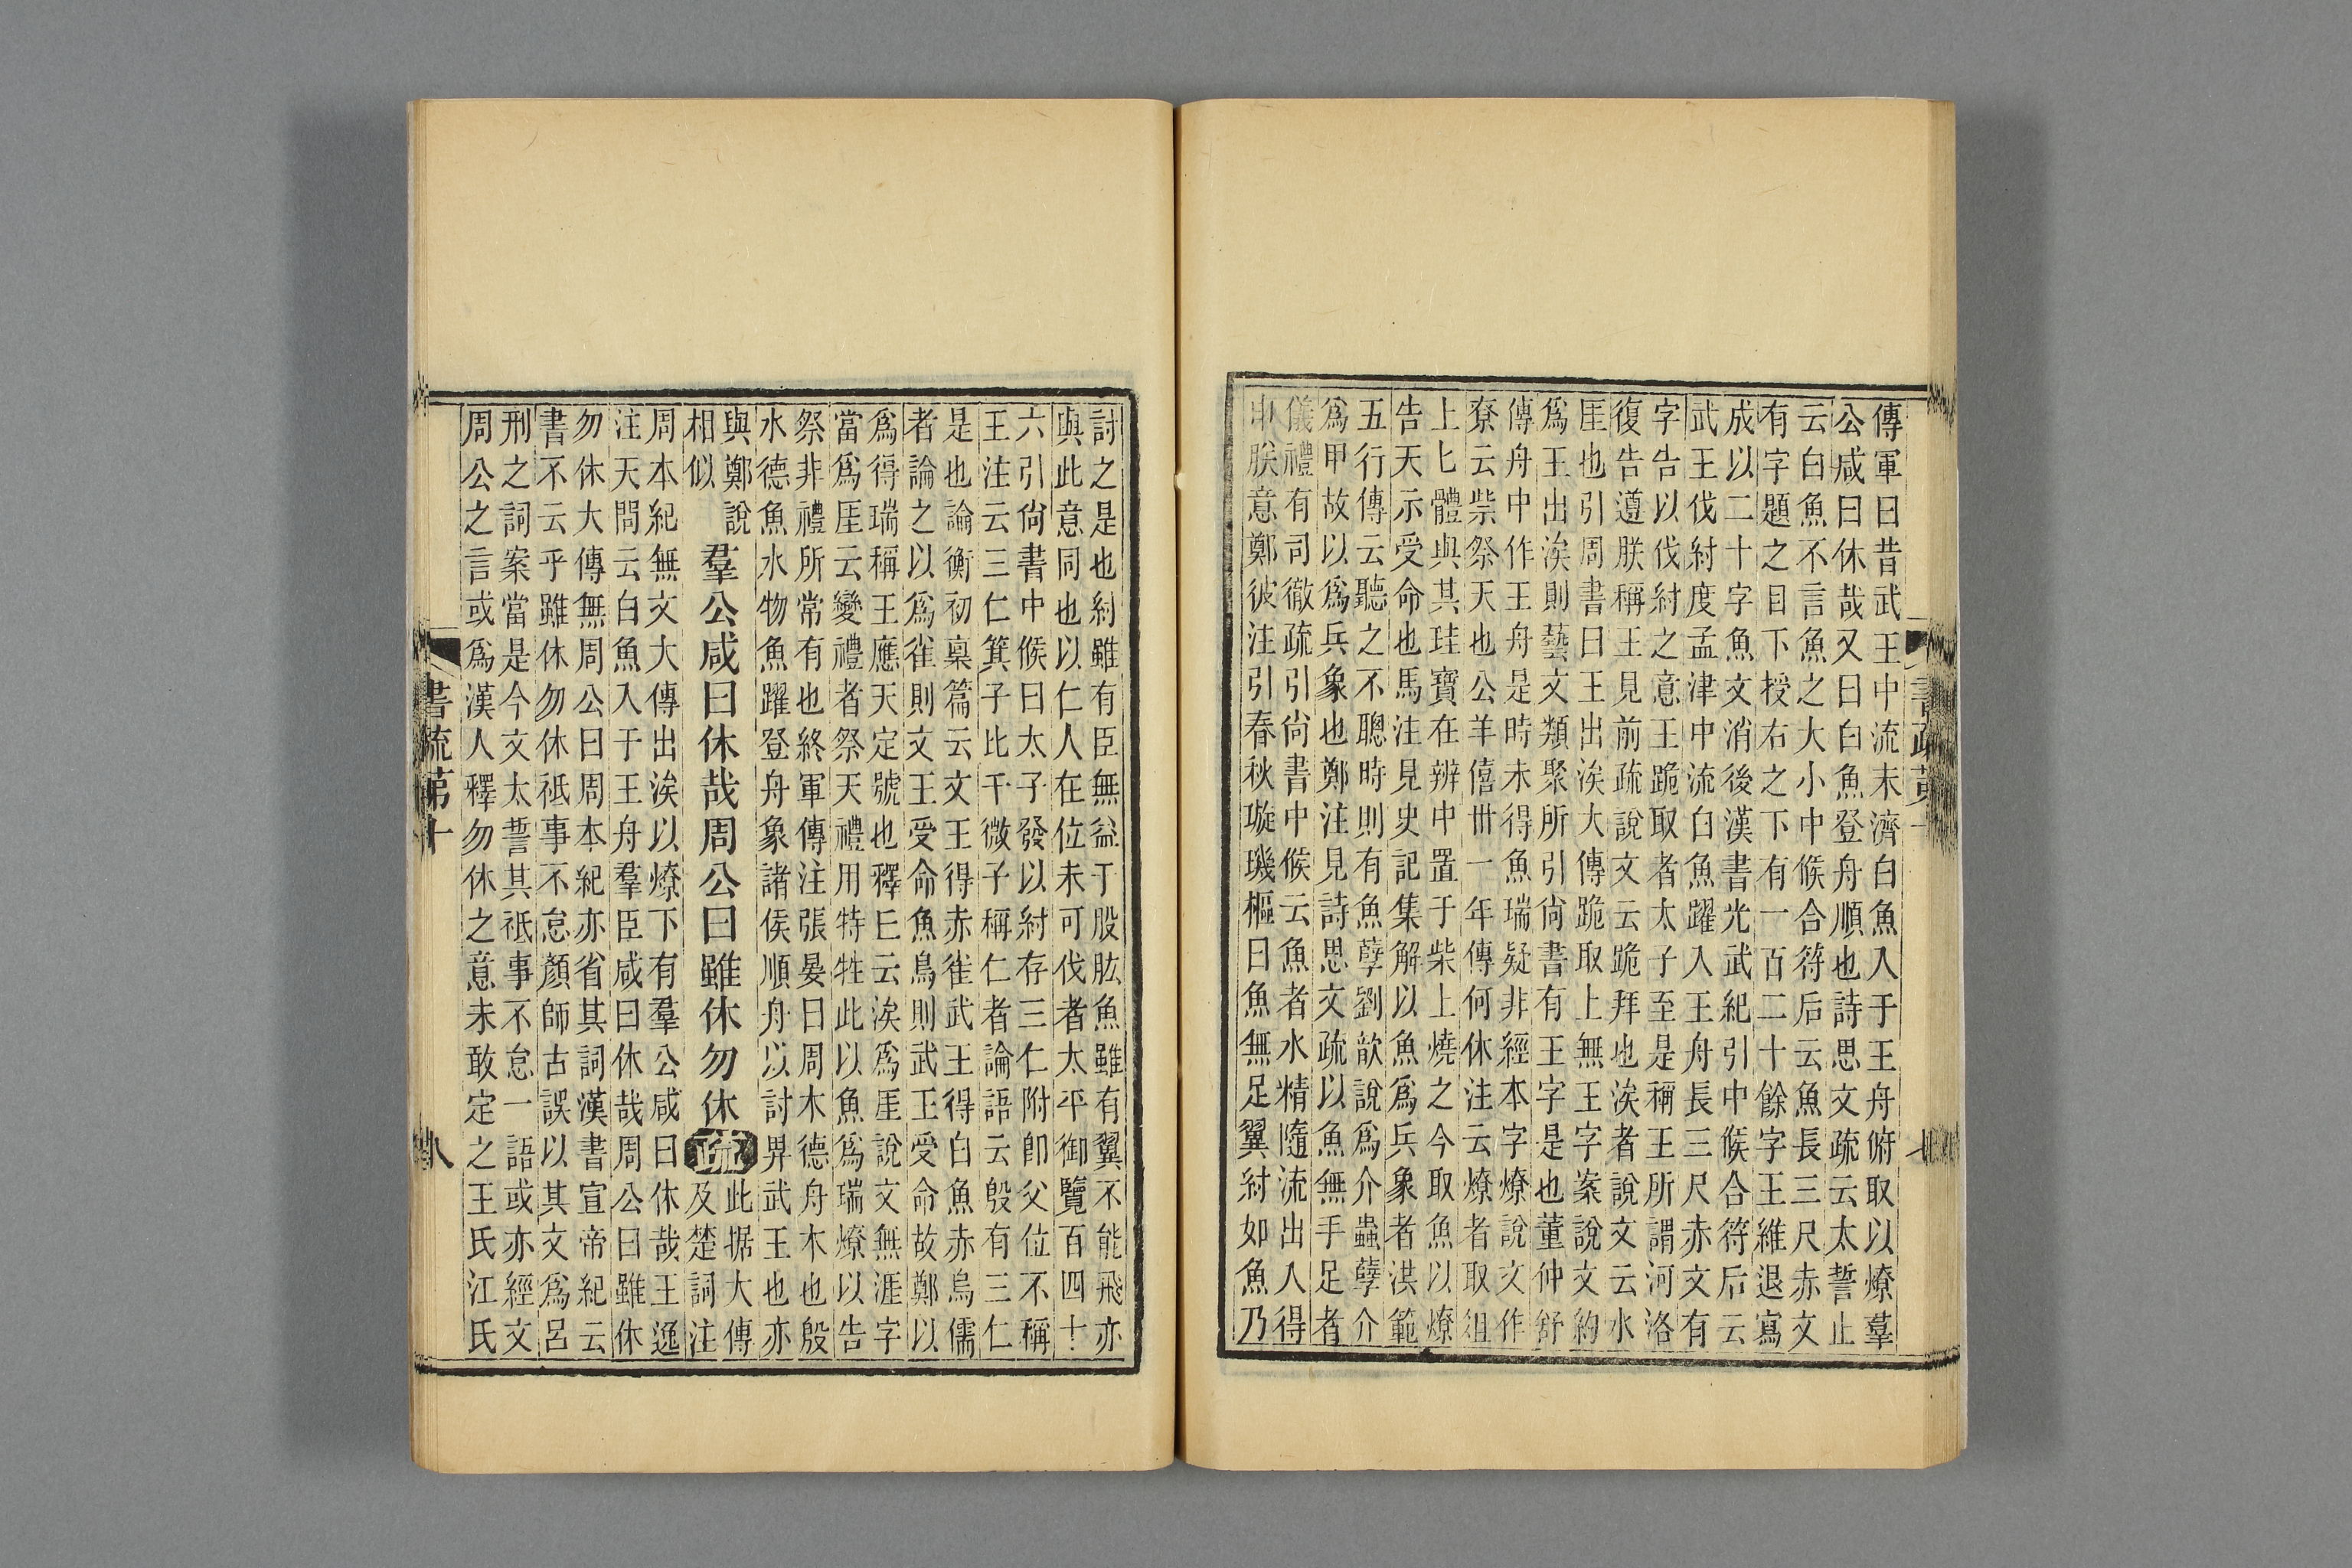 傳軍曰昔武王中流未濟白魚入于王舟俯取以燎羣
公咸曰休哉又曰白魚登舟順也詩思文疏云太誓止
云白魚不言魚之大小中候合符后云魚長三尺赤文
有字題之目下授右之下有一百二十餘字王維退寫
成以二十字魚文消後漢書光武紀引中候合符后云
武王伐紂度孟津中流白魚躍入王舟長三尺赤文有
字告以伐紂之意王跪取者太子至是稱王所謂河洛
復告遵朕稱王見前疏說文云跪拜也涘者說文云水
厓也引周書曰王出涘大傳跪取上無王字案說文約
爲王出涘則藝文類聚所引尚書有王字是也董仲舒
傳舟中作王舟是時未得魚瑞疑非經本字燎說文作
尞云祡祭天也公羊僖卅一年傳何休注云燎者取俎
上七體與其珪寶在辨中置于柴上燒之今取魚以燎
告天示受命也馬注見史記集解以魚爲兵象者洪範
五行傳云聽之不聰時則有魚孽劉歆說爲介蟲孽介
爲甲故以爲兵象也鄭注見詩思文疏以魚無手足者
儀禮有司徹疏引尚書中候云魚者水精隨流出人得
申朕意鄭彼注引春秋璇璣樞曰魚無足翼紂如魚乃
討之是也紂雖有臣無益于股肱魚雖有翼不能飛亦
與此意同也以仁人在位未可伐者太平御覽百四十
六引尚書中候曰太子發以紂存三仁附卽父位不稱
王注云三仁箕子比干微子稱仁者論語云殷有三仁
是也論衡初稟篇云文王得赤雀武王得白魚赤烏儒
者論之以爲雀則文王受命魚烏則武王受命故鄭以
爲得瑞稱王應天定號也釋巳云涘爲厓說文無涯字
當爲厓云變禮者祭天禮用特牲此以魚爲瑞燎以告
祭非禮所常有也終軍傳注張晏曰周木德舟木也殷
水德魚水物魚躍登舟象諸侯順舟以討畀武王也亦
與鄭說
相似
羣公咸曰休哉周公曰雖休勿休
疏
此据大傳
及楚詞注
周本紀無文大傳出涘以燎下有羣公咸曰休哉王逸
注天問云白魚入于王舟羣臣咸曰休哉周公曰雖休
勿休大傳無周公曰周本紀亦省其詞漢書宣帝紀云
書不云乎雖休勿休祗事不怠顏師古誤以其文爲呂
刑之詞案當是今文太誓其祗事不怠一語或亦經文
周公之言或爲漢人釋勿休之意未敢定之王氏江氏
書疏第十
八